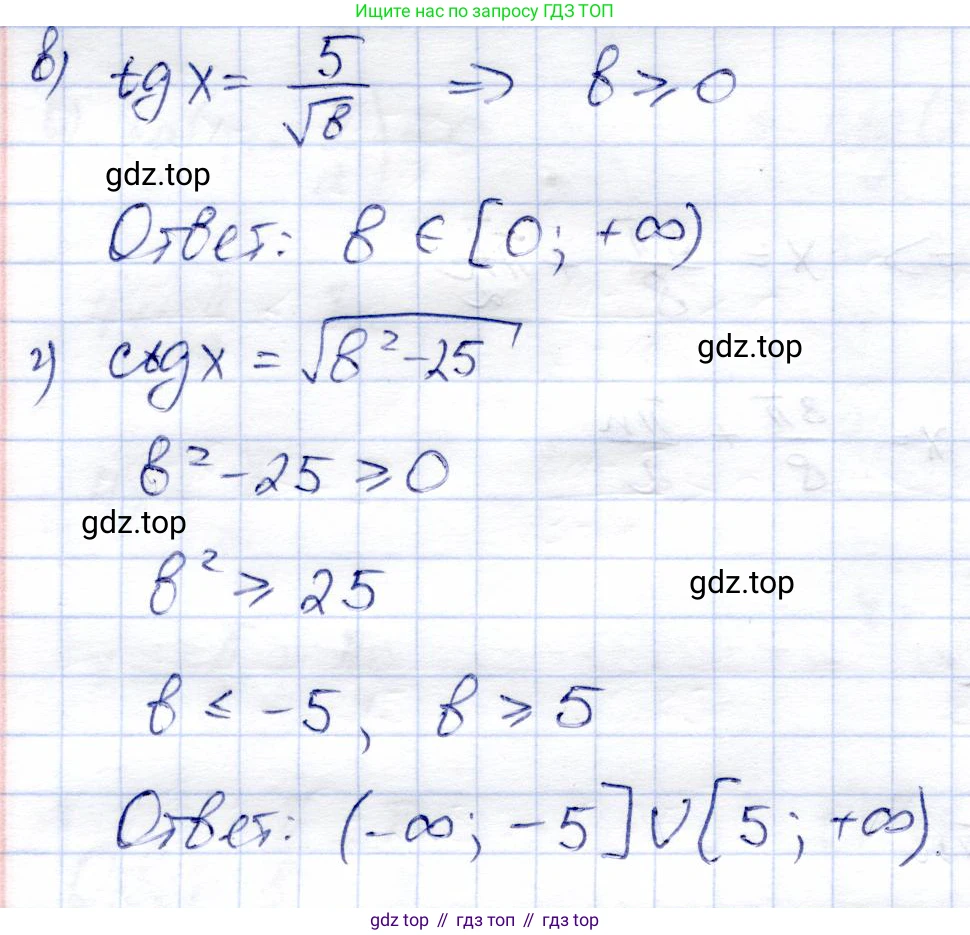 Ищите нас по запросу ГДЗ ТОП
в) tg x = 5/√в => в ≥ 0
gdz.top
Ответ: в ∈ [0; +∞)
г) ctg x = √(в² - 25)
gdz.top
в² - 25 ≥ 0
gdz.top
в² ≥ 25
gdz.top
в ≤ -5, в ≥ 5
Ответ: (-∞; -5] ∪ [5; +∞).
gdz top // гдз топ // гдз top